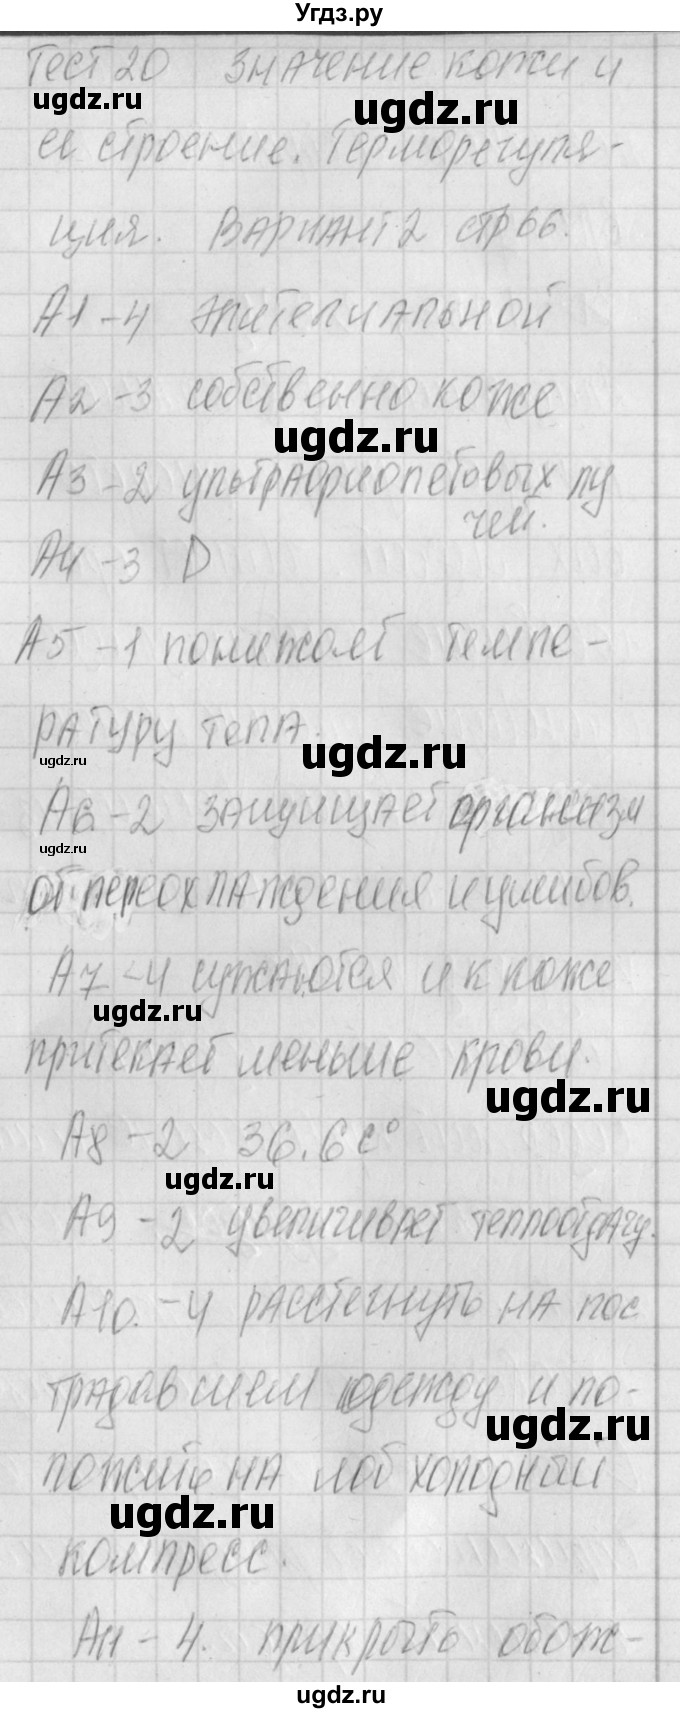 Угдз.ру
Тест 20 значение кожи и
ugdz.ru ugdz.ru
её строение. Терморегуля-
ция. Вариант 2 стр 66.
А1 - 4 эпителиальной
А2 - 3 собственно коже
ugdz.ru
А3 - 2 ультрафиолетовых лу
чей.
А4 - 3 D
А5 - 1 понижает темпе-
ратуру тела.
ugdz.ru ugdz.ru
А6. - 2 защищает организм
ugdz.ru
от переохлаждения и ушибов.
А7 - 4 сужаются и к коже
ugdz.ru
притекает меньше крови.
ugdz.ru
А8 - 2 36,6 с°
ugdz.ru
А9 - 2 увеличивает теплоотдачу.
А10. - 4 расстегнуть на пос
традавшем одежду и по-
ugdz.ru
ложить на лоб холодный
ugdz.ru
компресс.
А11 - 4. прикрыть обож-
ugdz.ru